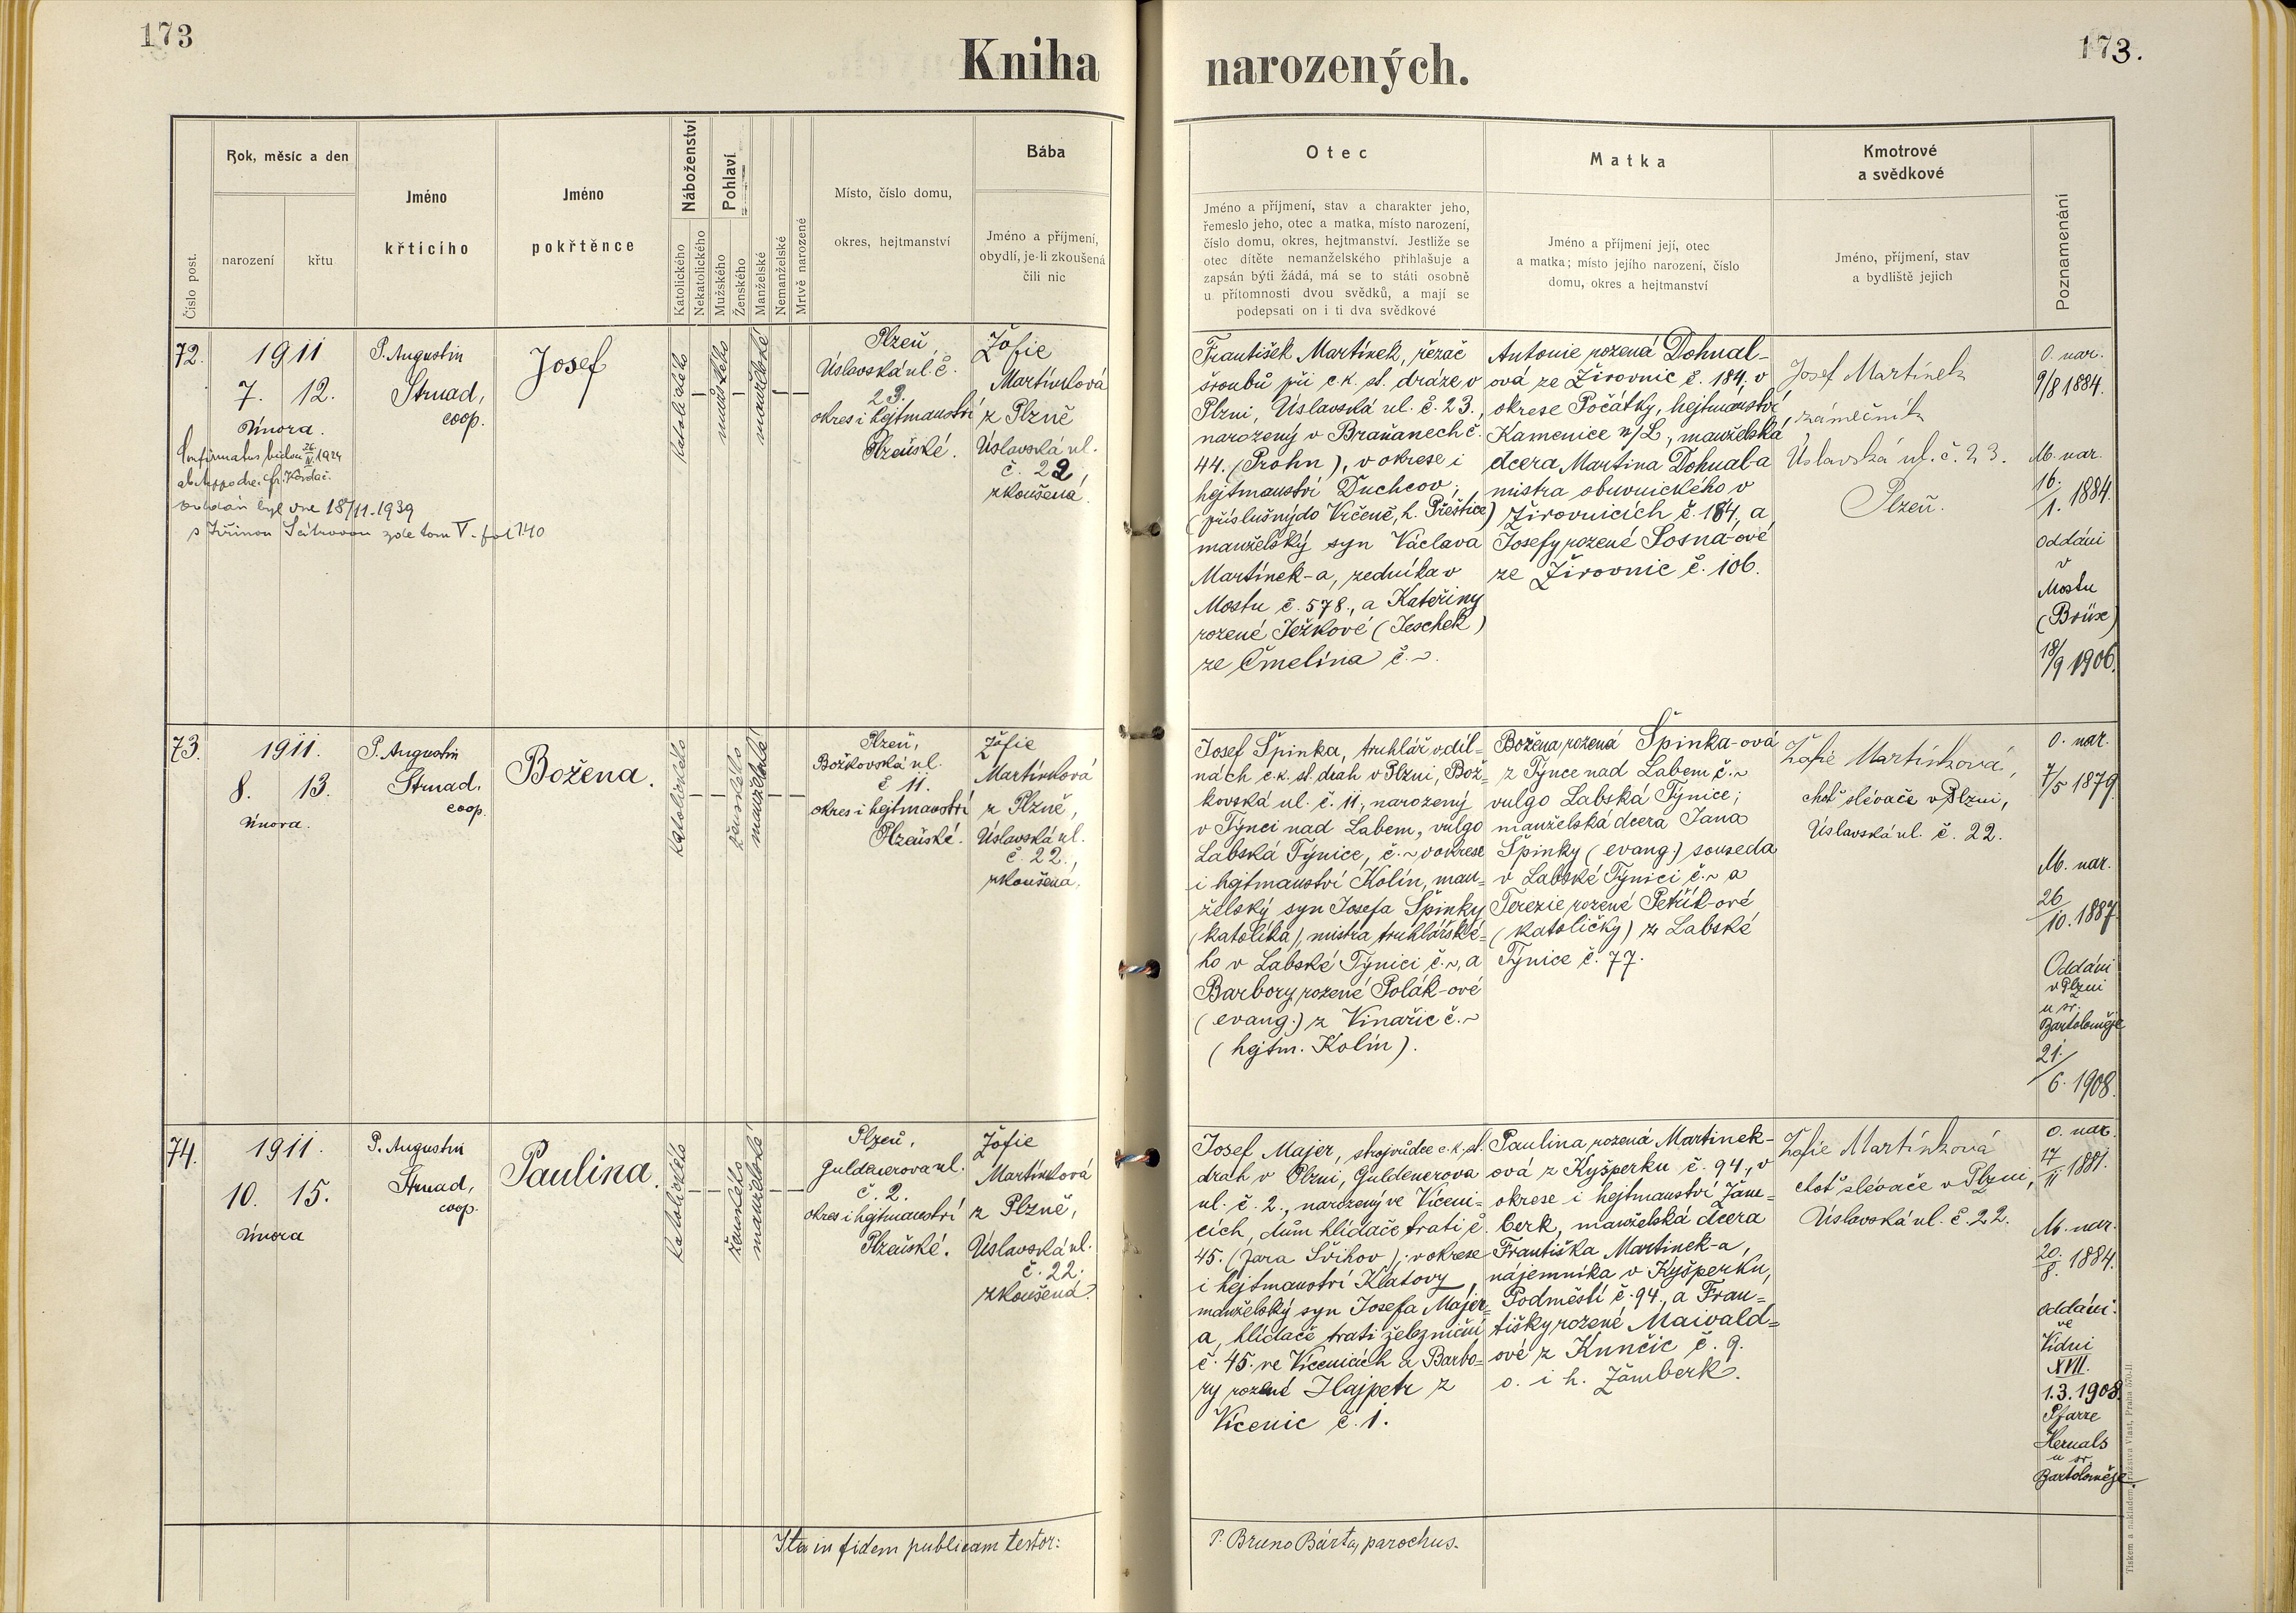 173
Kniha
narozených.
173.
Číslo post.
Rok, měsíc a den
narození
křtu
Jméno
křtícího
Jméno
pokřtěnce
Náboženství
Katolického
Nekatolického
Pohlaví
Mužského
Ženského
Manželské
Nemanželské
Mrtvě narozené
Místo, číslo domu,
okres, hejtmanství
Bába
Jméno a příjmení,
obydlí, je-li zkoušená
čili nic
Otec
Jméno a příjmení, stav a charakter jeho,
řemeslo jeho, otec a matka, místo narození,
číslo domu, okres, hejtmanství. Jestliže se
otec dítěte nemanželského přihlašuje a
zapsán býti žádá, má se to státi osobně
u přítomnosti dvou svědků, a mají se
podepsati on i ti dva svědkové
Matka
Jméno a příjmení její, otec
a matka; místo jejího narození, číslo
domu, okres a hejtmanství
Kmotrové
a svědkové
Jméno, příjmení, stav
a bydliště jejich
Poznamenání
72.
1911
7. 12.
února.
Confirmatus biduu 26/IV. 1924
oddán byl dne 18/11. 1939
s Jiřinou zde tom V. fol 140
P. Augustin
Strnad,
coop.
Josef
katolického
mužského
manželské
Plzeň,
Úslavská ul. č.
23.
okres i hejtmanství
Plzeňské.
Žofie
Martínková
z Plzně
Úslavská ul.
č. 22
zkoušená.
František Martínek, řezač
šroubů při c.k. st. dráze v
Plzni, Úslavská ul. č. 23.,
narozený v Braňanech č.
44. (Prohn), v okrese i
hejtmanství Duchcov;
(příslušný do Vrčeně, h. Přeštice)
manželský syn Václava
Martínek-a, zedníka v
Mostu č. 578., a Kateřiny
rozené Ježkové (Jeschek)
ze Čmelína č. ~.
Antonie rozená Dohnal-
ová ze Žirovnic č. 184, v
okrese Počátky, hejtmanství
Kamenice n/L, manželská
dcera Martina Dohnal-a
mistra obuvnického v
Žirovnicích č. 184, a
Josefy rozené Sosna-ové
ze Žirovnic č. 106.
Josef Martínek
zámečník
Úslavská ul. č. 23.
Plzeň.
O. nar.
9/8 1884.
M. nar.
16./1. 1884.
oddáni
v
Mostu
(Brüx)
18/9 1906.
73.
1911.
8. 13.
února.
P. Augustin
Strnad,
coop.
Božena.
katolického
ženského
manželské
Plzeň,
Božkovská ul.
č 11.
okres i hejtmanství
Plzeňské.
Žofie
Martínková
z Plzně,
Úslavská ul.
č. 22.,
zkoušená.
Josef Špinka, truhlář v díl=
nách c.k. st. drah v Plzni, Bož=
kovská ul. č. 11., narozený
v Týnci nad Labem, vulgo
Labská Týnice, č. ~, v okrese
i hejtmanství Kolín, man=
želský syn Josefa Špinky
(katolíka), mistra truhlářské=
ho v Labské Týnici č. ~, a
Barbory rozené Polák-ové
(evang.) z Vinařic č. ~
(hejtm. Kolín).
Božena rozená Špinka-ová
z Týnce nad Labem č. ~
vulgo Labská Týnice;
manželská dcera Jana
Špinky (evang.) souseda
v Labské Týnici č. ~ a
Terezie rozené Petřík-ové
(katoličky) z Labské
Týnice č. 77.
Žofie Martínková,
choť slévače v Plzni,
Úslavská ul. č. 22.
O. nar.
7/5 1879
M. nar.
26/10. 1887.
Oddáni
v Plzni
u sv.
Bartoloměje
21./6. 1908.
74.
1911.
10. 15.
února
P. Augustin
Strnad,
coop.
Paulina.
katolického
ženského
manželské
Plzeň,
Guldenerova ul.
č. 2.
okres i hejtmanství
Plzeňské.
Žofie
Martínková
z Plzně,
Úslavská ul.
č. 22.
zkoušená.
Josef Majer, strojvůdce c.k. st.
drah v Plzni, Guldenerova
ul. č. 2., narozený ve Vícení-
cích, dům hlídače trati č.
45. (fara Švihov); v okrese
i hejtmanství Klatovy,
manželský syn Josefa Majer=
a, hlídače trati železniční
č. 45. ve Vícenicích a Barbo=
ry rozené Hajpetr z
Vícenic č. 1.
Paulina rozená Martinek-
ová z Kyšperku č. 94., v
okrese i hejtmanství Žam=
berk, manželská dcera
Františka Martinek-a,
nájemníka v Kyšperku,
Podměstí č. 94., a Fran=
tišky rozené Maivald=
ové z Kunčic č. 9.
o. i h. Žamberk.
Žofie Martínková
choť slévače v Plzni,
Úslavská ul. č. 22.
O. nar.
17/II. 1881.
M. nar.
20./8. 1884.
oddáni:
ve
Vídni
XVII.
1.3.1908.
Pfarre
Hernals
u sv.
Bartoloměje
Ita in fidem publicam testor:
P. Bruno Bárta, parochus.